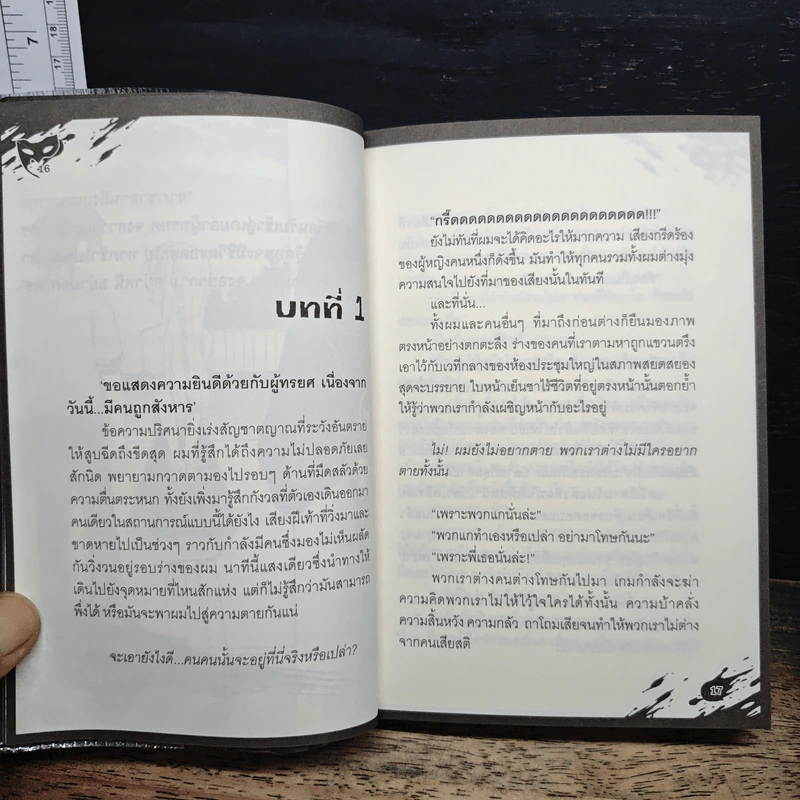 7
17
18
16
บทที่ 1
'ขอแสดงความยินดีด้วยกับผู้ทรยศ เนื่องจาก
วันนี้...มีคนถูกสังหาร'
ข้อความปริศนายิ่งเร่งสัญชาตญาณที่ระวังอันตราย
ให้สูบฉีดถึงขีดสุด ผมที่รู้สึกได้ถึงความไม่ปลอดภัยเลย
สักนิด พยายามกวาดตามองไปรอบๆ ด้านที่มืดสลัวด้วย
ความตื่นตระหนก ทั้งยังเพิ่งมารู้สึกกังวลที่ตัวเองเดินออกมา
คนเดียวในสถานการณ์แบบนี้ได้ยังไง เสียงฝีเท้าที่วิ่งมาและ
ขาดหายไปเป็นช่วงๆ ราวกับกำลังมีคนซึ่งมองไม่เห็นผลัด
กันวิ่งวนอยู่รอบร่างของผม นาทีนี้แสงเดียวซึ่งนำทางให้
เดินไปยังจุดหมายที่ไหนสักแห่ง แต่ก็ไม่รู้สึกว่ามันสามารถ
พึ่งได้ หรือมันจะพาผมไปสู่ความตายกันแน่
จะเอายังไงดี...คนคนนั้นจะอยู่ที่นี่จริงหรือเปล่า?
"กรี๊ดดดดดดดดดดดดดดดดดดดดดดด!!!"
ยังไม่ทันที่ผมจะได้คิดอะไรให้มากความ เสียงกรีดร้อง
ของผู้หญิงคนหนึ่งก็ดังขึ้น มันทำให้ทุกคนรวมทั้งผมต่างมุ่ง
ความสนใจไปยังที่มาของเสียงนั้นในทันที
และที่นั่น...
ทั้งผมและคนอื่นๆ ที่มาถึงก่อนต่างก็ยืนมองภาพ
ตรงหน้าอย่างตกตะลึง ร่างของคนที่เราตามหาถูกแขวนตรึง
เอาไว้กับเวทีกลางของห้องประชุมใหญ่ในสภาพสยดสยอง
สุดจะบรรยาย ใบหน้าเย็นชาไร้ชีวิตที่อยู่ตรงหน้านั้นตอกย้ำ
ให้รู้ว่าพวกเรากำลังเผชิญหน้ากับอะไรอยู่
ไม่! ผมยังไม่อยากตาย พวกเราต่างไม่มีใครอยาก
ตายทั้งนั้น
"เพราะพวกแกนั่นล่ะ"
"พวกแกทำเองหรือเปล่า อย่ามาโทษกันนะ"
"เพราะพี่เธอนั่นล่ะ!"
พวกเราต่างคนต่างโทษกันไปมา เกมกำลังจะฆ่า
ความคิดพวกเราไม่ให้ไว้ใจใครได้ทั้งนั้น ความบ้าคลั่ง
ความสิ้นหวัง ความกลัว ถาโถมเสียจนทำให้พวกเราไม่ต่าง
จากคนเสียสติ
17